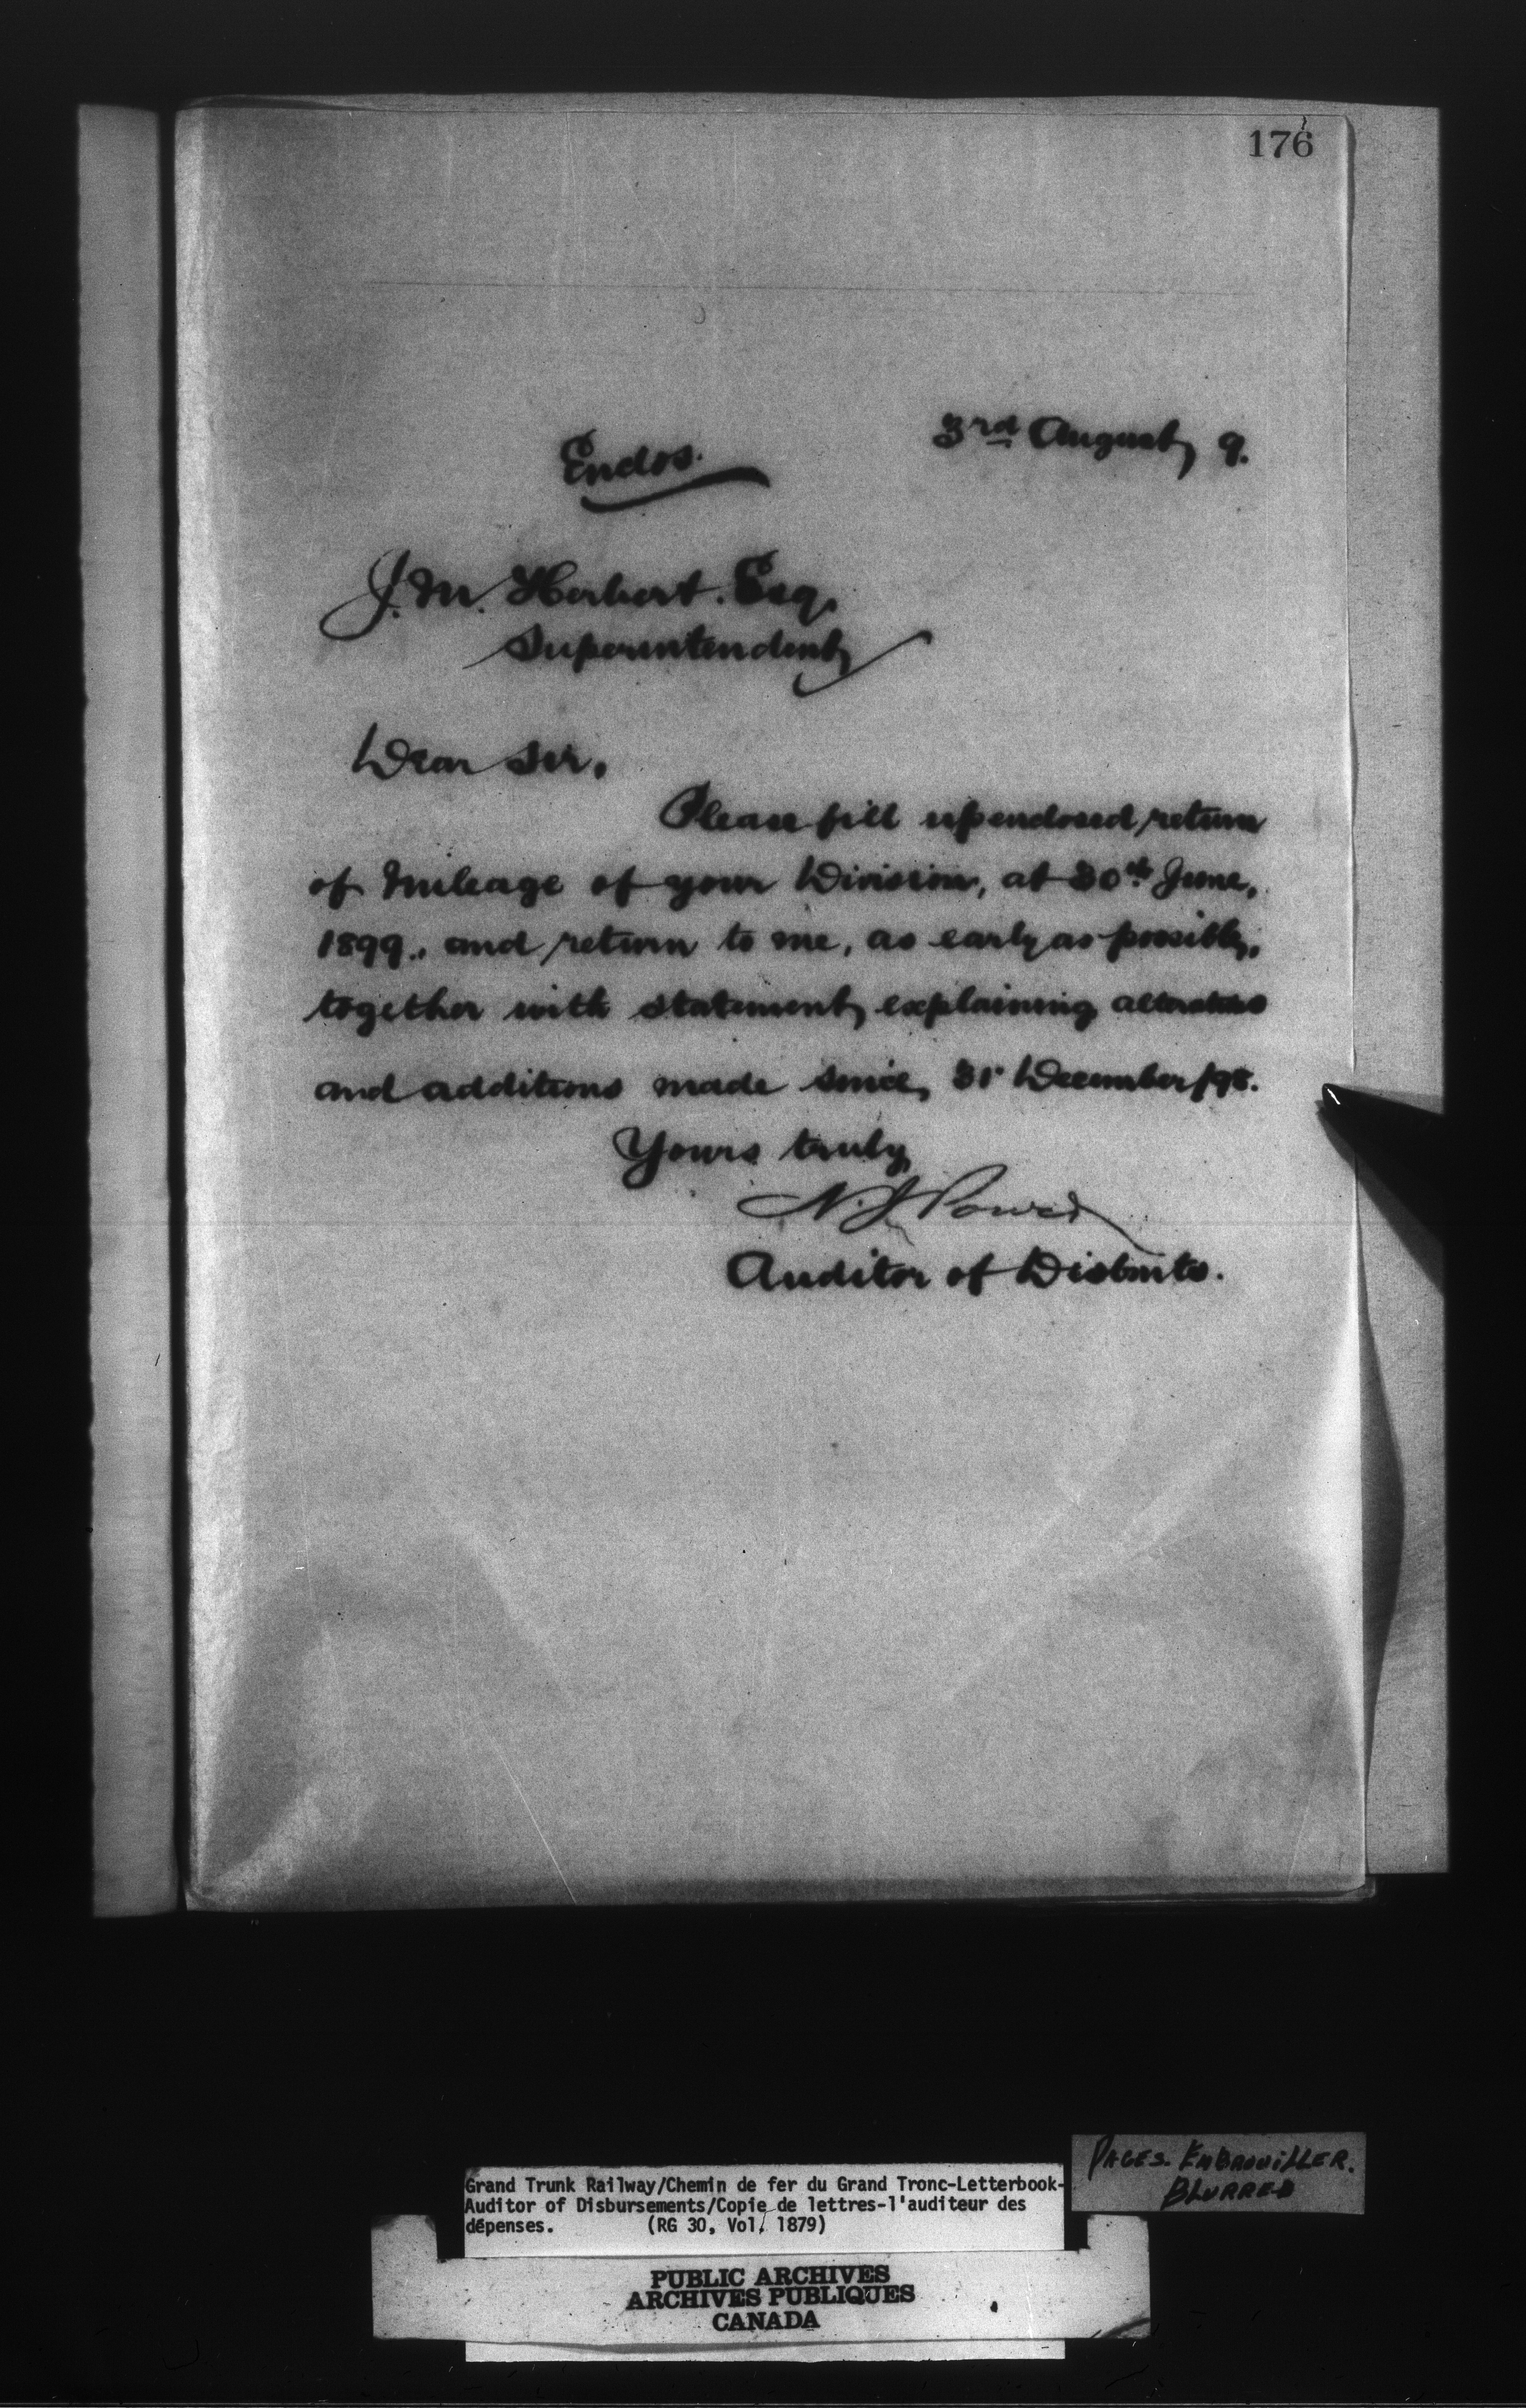 176
3rd August, 9.
Enclos.
J. M. Herbert. Esq.
Superintendent,
Dear Sir,
Please fill up enclosed return
of mileage of your Division, at 30th June,
1899., and return to me, as early as possible,
together with statement, explaining alterations
and additions made since, 31st December/98.
Yours truly,
N. J. Power
Auditor of Disbmts.
PAGES. EMBROUILLER.
BLURRED
Grand Trunk Railway/Chemin de fer du Grand Tronc-Letterbook-
Auditor of Disbursements/Copie de lettres-l'auditeur des
dépenses. (RG 30, Vol. 1879)
PUBLIC ARCHIVES
ARCHIVES PUBLIQUES
CANADA